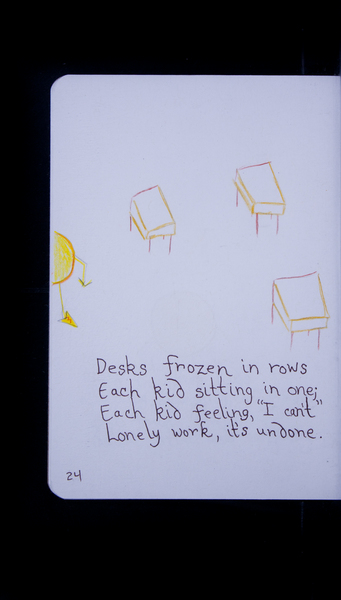 Desks frozen in rows
Each kid sitting in one;
Each kid feeling, "I can't"
Lonely work, it's undone.
24